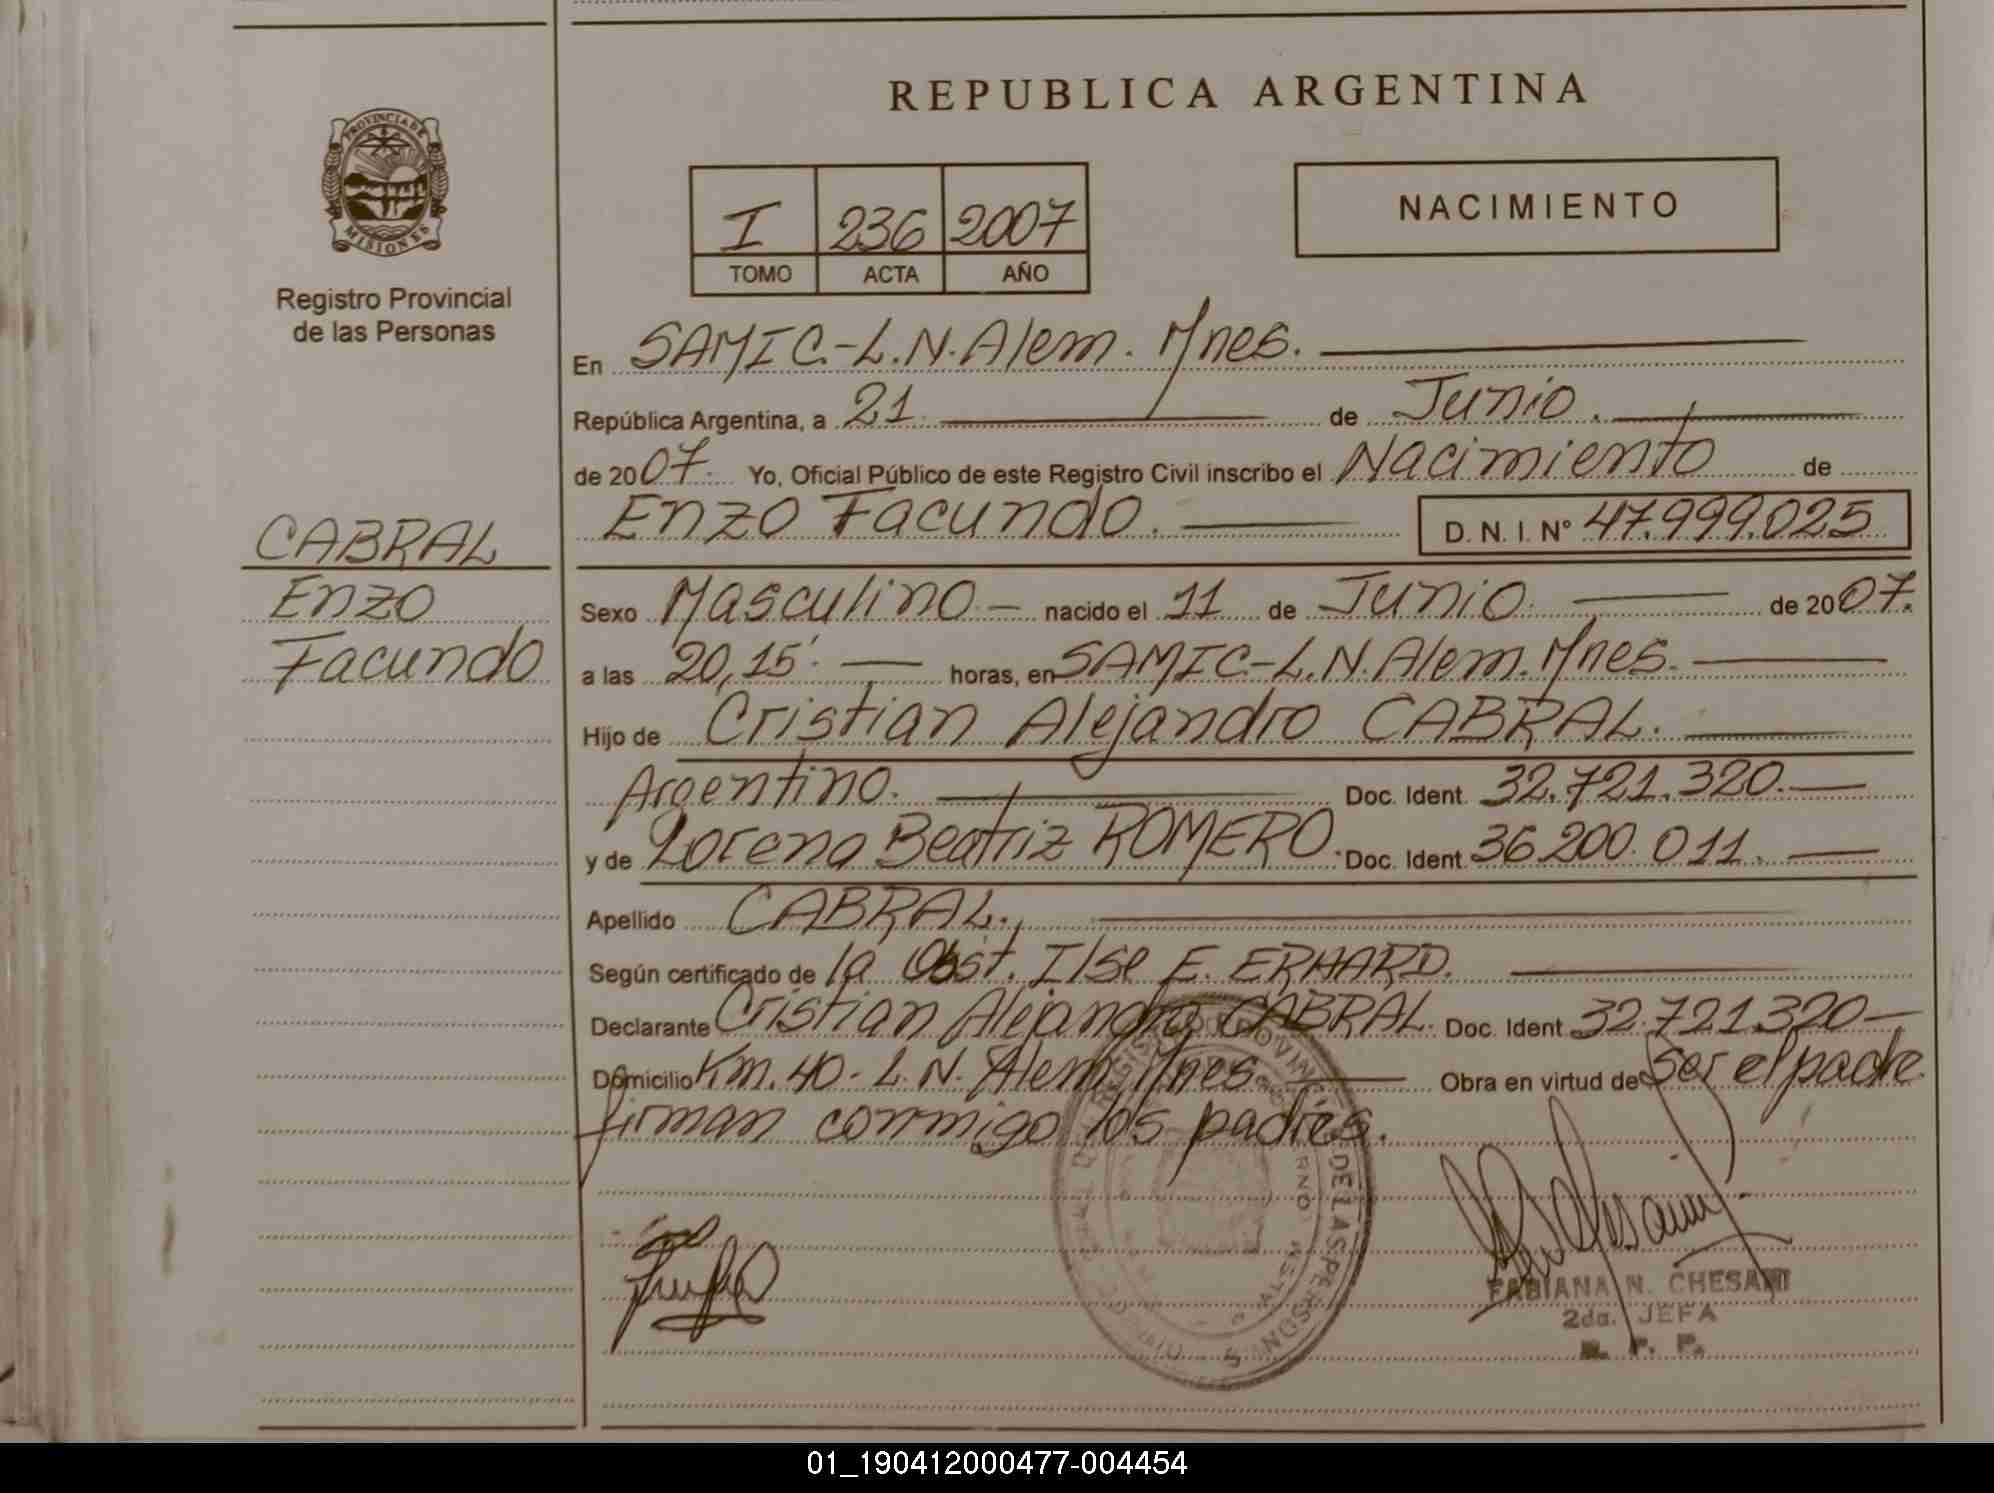 REPUBLICA ARGENTINA
PROVINCIA DE
MISIONES
Registro Provincial
de las Personas
I 236 2007
TOMO ACTA AÑO
NACIMIENTO
En SAMIC.-L.N.Alem. Mnes.
República Argentina, a 21 de Junio.
de 2007. Yo, Oficial Público de este Registro Civil inscribo el Nacimiento de
Enzo Facundo. D. N. I. Nº 47.999.025
CABRAL
Enzo
Facundo
Sexo Masculino.- nacido el 11 de Junio. de 2007.
a las 20,15'. horas, en SAMIC-L.N.Alem.Mnes.
Hijo de Cristian Alejandro CABRAL.
Argentino. Doc. Ident. 32.721.320.
y de Lorena Beatriz ROMERO. Doc. Ident. 36.200.011.
Apellido CABRAL.
Según certificado de la Obst. Ilse E. ERHARD.
Declarante Cristian Alejandro CABRAL. Doc. Ident. 32.721.320
Domicilio Km. 40- L.N. Alem Mnes. Obra en virtud de Ser el padre
firman conmigo los padres.
DE LAS PERSONAS
ALEM
FABIANA N. CHESANI
2da. JEFA
R. P. P.
01_190412000477-004454